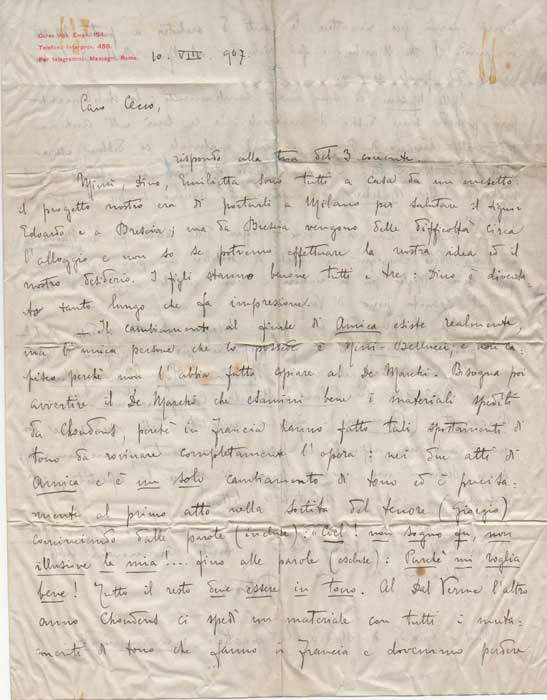 Corso Vitt. Eman. 154.
Telefono Interprov. 455.
Per telegrammi: Mascagni, Roma.
10. VIII. 907.
Caro Cecco,
rispondo alla tua del 3 corrente.
Mimì, Dino, Emilietta sono tutti a casa da un mesetto.
il progetto nostro era di portarli a Milano per salutare il Signor
Edoardo e a Brescia; ma da Brescia vengono delle difficoltà circa
l'alloggio e non so se potremo effettuare la nostra idea ed il
nostro desiderio. I figli stanno benone tutti e tre: Dino è diventa-
to tanto lungo che fa impressione.
— Il cambiamento al finale di Amica esiste realmente,
ma l'unica persona che lo possiede è Mimì-Bellucci, e non ca-
pisco perchè non l'abbia fatto copiare al De Marchi. Bisogna poi
avvertire il De Marchi che esamini bene i materiali spediti
da Choudens, perchè in Francia hanno fatto tali spostamenti di
tono da rovinare completamente l'opera: nei due atti di
Amica c'è un solo cambiamento di tono ed è precisa-
mente al primo atto nella sortita del tenore (Giorgio)
cominciando dalle parole (incluse): Ciel! non sogno qui, non
illusione la mia!... fino alle parole (escluse): Perchè mi voglia
bene! Tutto il resto deve essere in tono. Al Dal Verme l'altro
anno Choudens ci spedì un materiale con tutti i muta-
menti di tono che fanno in Francia e dovemmo perdere